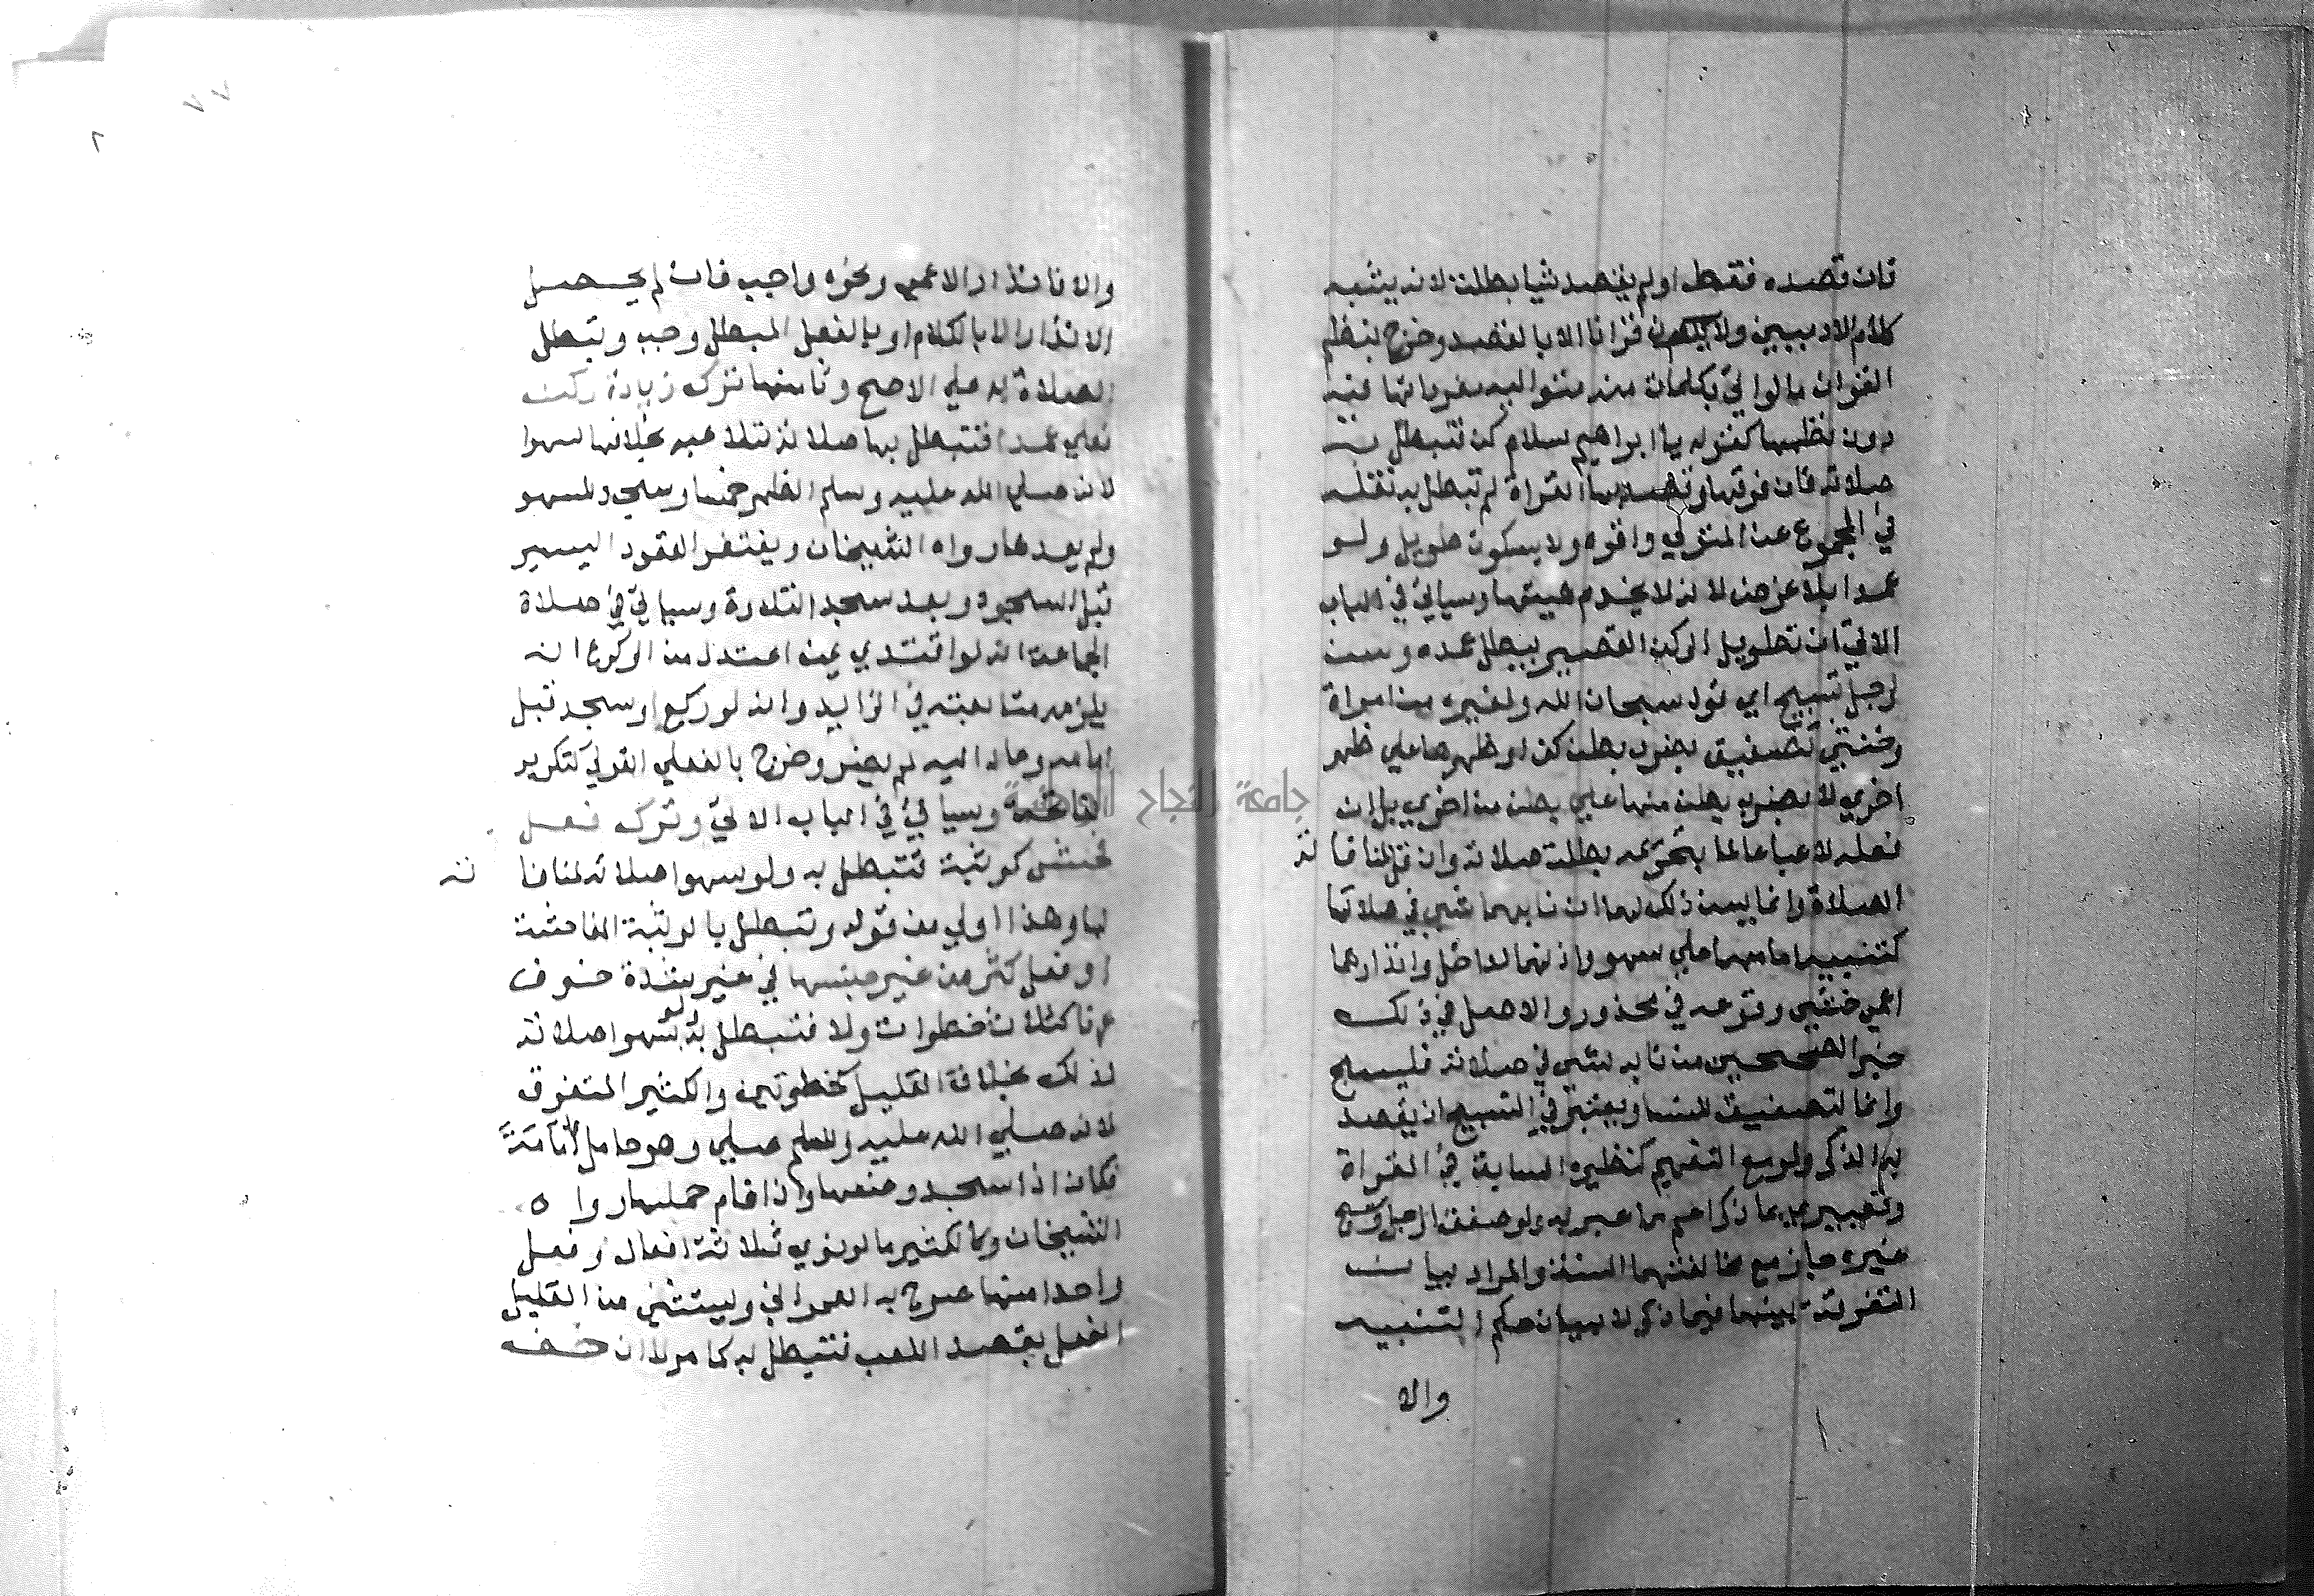 فان قصده فقط او لم يقصد شيا بطلت لانه يشبه
كلام الادميين ولا يكون قرانا الا بالقصد وخرج بنظم
القران ما لو اتي بكلمات منه متواليه مفرداتها فيه
دون نظمها كقوله يا ابراهيم سلام كن فتبطل بـــه
صلاته فان فرقها وقصد بها القراة لم تبطل به نقله
في المجموع عن المتولي واقره ولا بسكوت طويل ولو
عمدا بلا غرض لانه لا يخرم هيتها وسياتي في الباب
الاتي ان تطويل الركن القصير يبطل عمده وسن
لرجل تسبيح اي قول سبحان الله ولغيره من امراة
وخنثي تصفيق بضرب بطن كف او ظهرها علي ظهر
اخري لا بضرب بطن منها علي بطن من اخري بل ان
فعله لاعبا عالما بتحريمه بطلت صلاته وان قل لمنافا ته
الصلاة وانما يسن ذلك لهما ان نابهما شي في صلاتهما
كتنبيه امامهما علي سهو واذنهما لداخل وانذارهما
اعمي خشي وقوعه في محذور والاصل في ذلك
خبر الصحيحين من نابه شي في صلاته فليسبح
وانما التصفيق للنسا ويعتبر في التسبيح ان يقصد
به الذكر ولو مع التفهيم كنظيره السابق في القراة
وتعبيري بما ذكر اعم مما عبر به ولو صفق الرجل وسبح
غيره جاز مع مخالفتهما السنة والمراد بيان
التفرقة بينهما فيما ذكر لا بيان حكم التنبيه
والا
٧٧
٢
والا فانذار الاعمي ونحوه واجب فان لم يحصل
الانذار الا بالكلام او بالفعل المبطل وجب وتبطل
الصلاة به علي الاصح وثامنها ترك زيادة ركن
فعلي عمدا فتبطل بها صلاته لتلاعبه بخلافها سهوا
لانه صلي الله عليه وسلم صلي الظهر خمسا وسجد للسهو
ولم يعدها رواه الشيخان ويغتفر القعود اليسير
قبل السجود وبعد سجدة التلاوة وسياتي في صلاة
الجماعة انه لو اقتدي بمن اعتدل من الركوع انه
يلزمه متابعته في الزايد وانه لو ركع او سجد قبل
امامه وعاد اليه لم يضر وخرج بالفعلي القولي كتكرير
الفاتحة وسياتي في الباب الاتي وترك فعل
فحش كوثبة فتبطل به ولو سهوا صلاته لمنافا ته
لها وهذا اولي من قوله وتبطل بالوثبة الفاحشة
او فعل كثر من غير جنسها في غير شدة خوف
عرفا كثلاث خطوات ولا فتبطل به ولو سهوا صلاته
لذلك بخلاف القليل كخطوتين والكثير المتفرق
لانه صلي الله عليه وسلم صلي وهو حامل امامة
فكان اذا سجد وضعها واذا قام حملها روا ه
الشيخان وكالكثير ما لو نوي ثلاثة افعال وفعل
واحدا منها صرح به العمراني ويستثني من القليل
الفعل بقصد اللعب فتبطل به كما مر لا ان خف
جامعة النجاح الوطنية